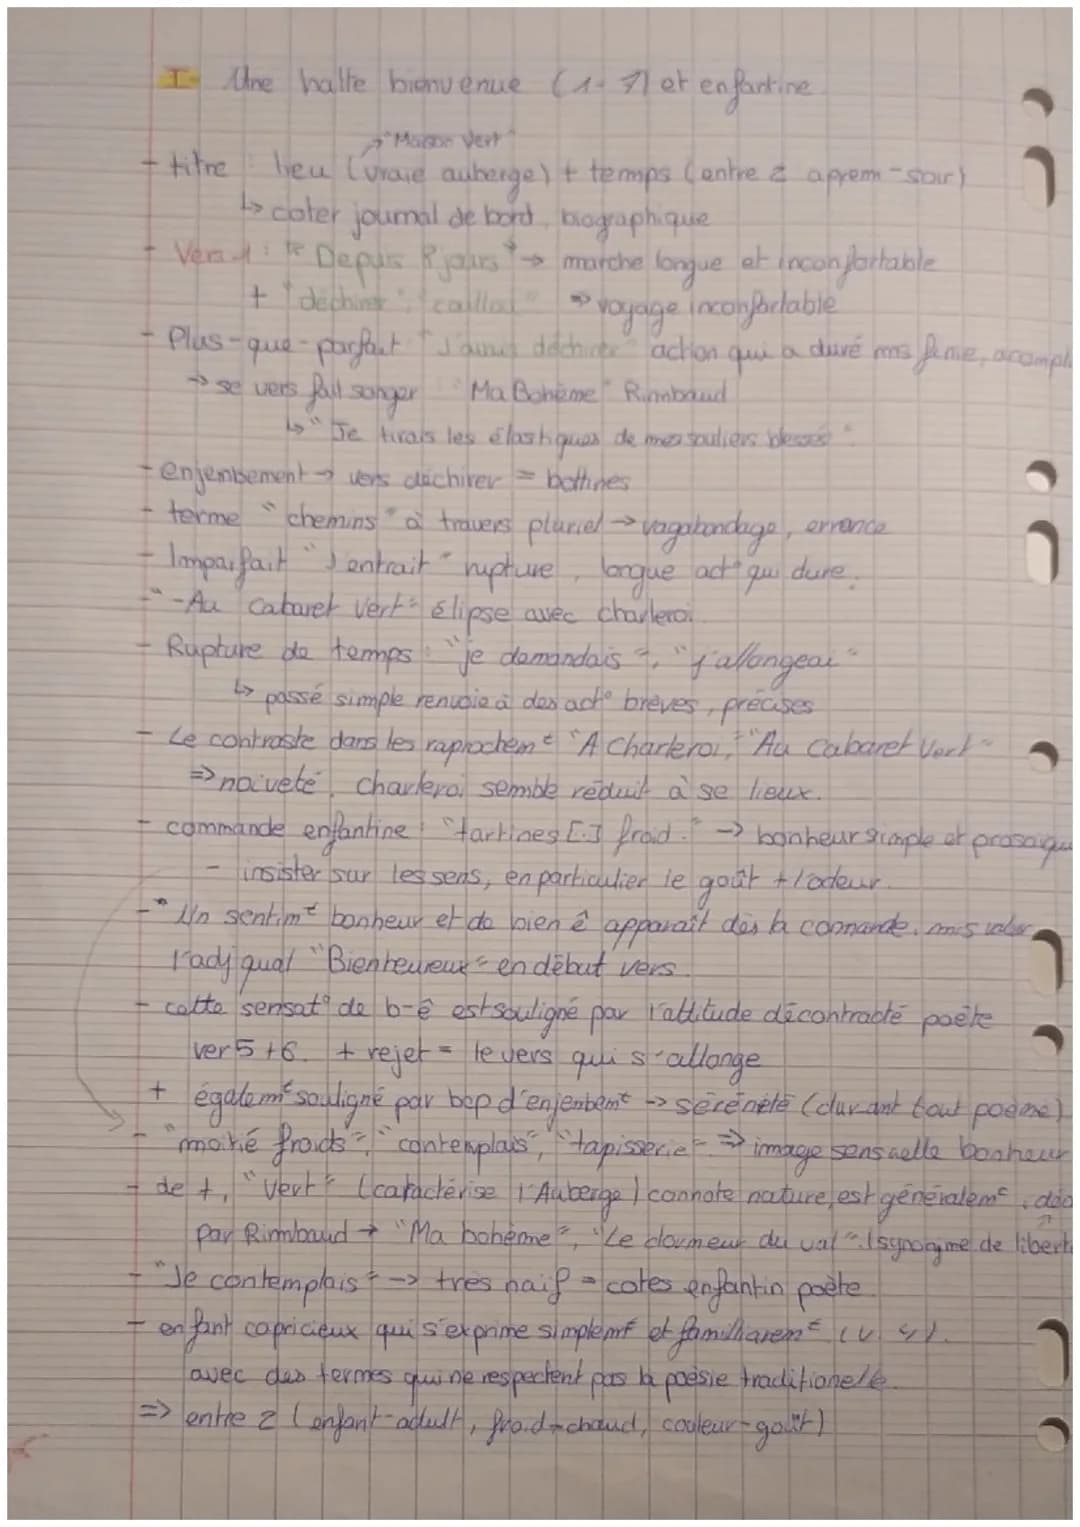 I- Une halte bienvenue (1-7) et enfantine
"Maison Vert"
- titre : lieu (vraie auberge) + temps (entre 2 aprem-soir)
↳ coter journal de bord, biographique
- Vers 1 : "Depuis 8 jours" → marche longue et inconfortable
+ "déchirer", "cailloux" ⇒ voyage inconfortable
- Plus-que-parfait "J'avais déchirer" action qui a duré mns finie, acompli
→ se vers fait songer "Ma Bohème" Rimbaud
↳ "Je tirais les élastiques de mes souliers blessés"
- enjembement → vers déchirer = bottines
- terme "chemins" à travers pluriel → vagabondage, errance
- Imparfait "J'entrait" rupture, longue act° qui dure.
- "-Au Cabaret Vert" élipse avec charleroi
- Rupture de temps : "je demandais", "j'allongeai"
↳ passé simple renvoie à des act° brèves, précises
- Le contraste dans les raprochemt "A Charleroi," "Au Cabaret Vert"
⇒ naïveté, charleroi semble réduit à se lieux.
- commande enfantine : "tartines [.] froid." → bonheur simple et prosaïque
- insister sur les sens, en particulier le goût + l'odeur.
- Un sentimt bonheur et de bien ê apparaît dès la commande, mis
l'adj qual "Bienheureux" en début vers
- cette sensat° de b-ê est souligné par l'attitude décontracté poète
ver 5+6. + rejet = le vers qui s'allonge
+ égalemt souligné par bcp d'enjenbemt → sérénité (durant tout poème)
- "moitié froids", "contemplais", "tapisserie" ⇒ image sensuelle bonheur
- de +, "Vert" (caractérise l'Auberge) connote nature, est généralemt
par Rimbaud → "Ma bohème", "Le dormeur du val" (synonyme de liberté
- "Je contemplais" → très naïf = cotes enfantin poète
- enfant capricieux qui s'exprime simplemt et familiaremt (v. 4).
avec des termes qui ne respectent pas la poésie traditionelle
⇒ entre 2 (enfant-adult, froid-chaud, couleur-goût)